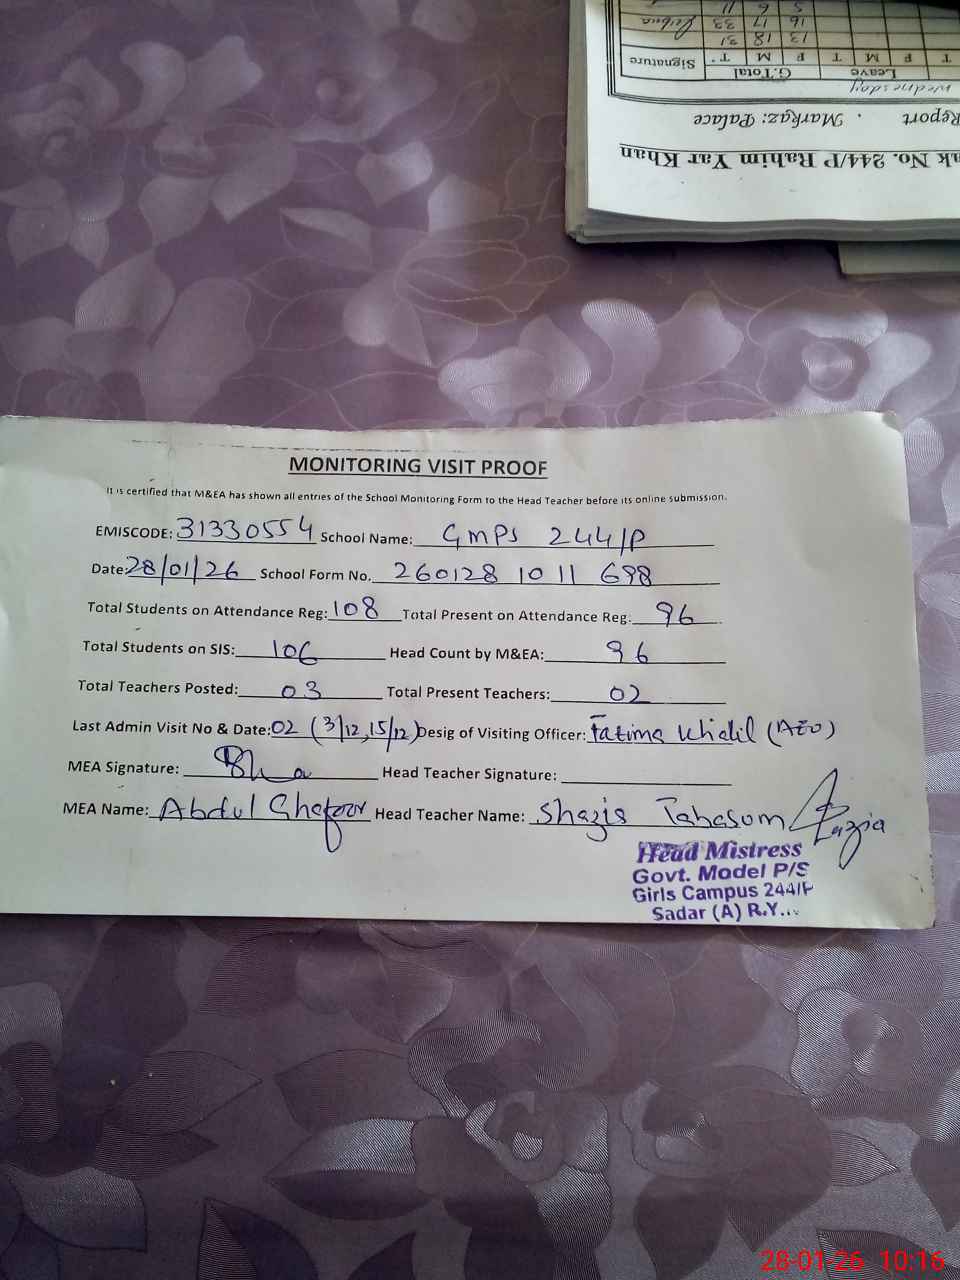 ak No. 244/P Rahim Yar Khan
Report . Markaz: Palace
Wednesday
Leave G.Total Signature
T F M T F M T
13 18 31
16 17 33
5 6 11
MONITORING VISIT PROOF
It is certified that M&EA has shown all entries of the School Monitoring Form to the Head Teacher before its online submission.
EMISCODE: 31330554 School Name: GMPS 244/P
Date: 28/01/26 School Form No. 260128 10 11 698
Total Students on Attendance Reg: 108 Total Present on Attendance Reg: 96
Total Students on SIS: 106 Head Count by M&EA: 96
Total Teachers Posted: 03 Total Present Teachers: 02
Last Admin Visit No & Date: 02 (3/12, 15/12) Desig of Visiting Officer: Fatima Khalil (AEO)
MEA Signature: Head Teacher Signature:
MEA Name: Abdul Ghafoor Head Teacher Name: Shazia Tabasum
Head Mistress
Govt. Model P/S
Girls Campus 244/P
Sadar (A) R.Y...
28-01-26 10:16